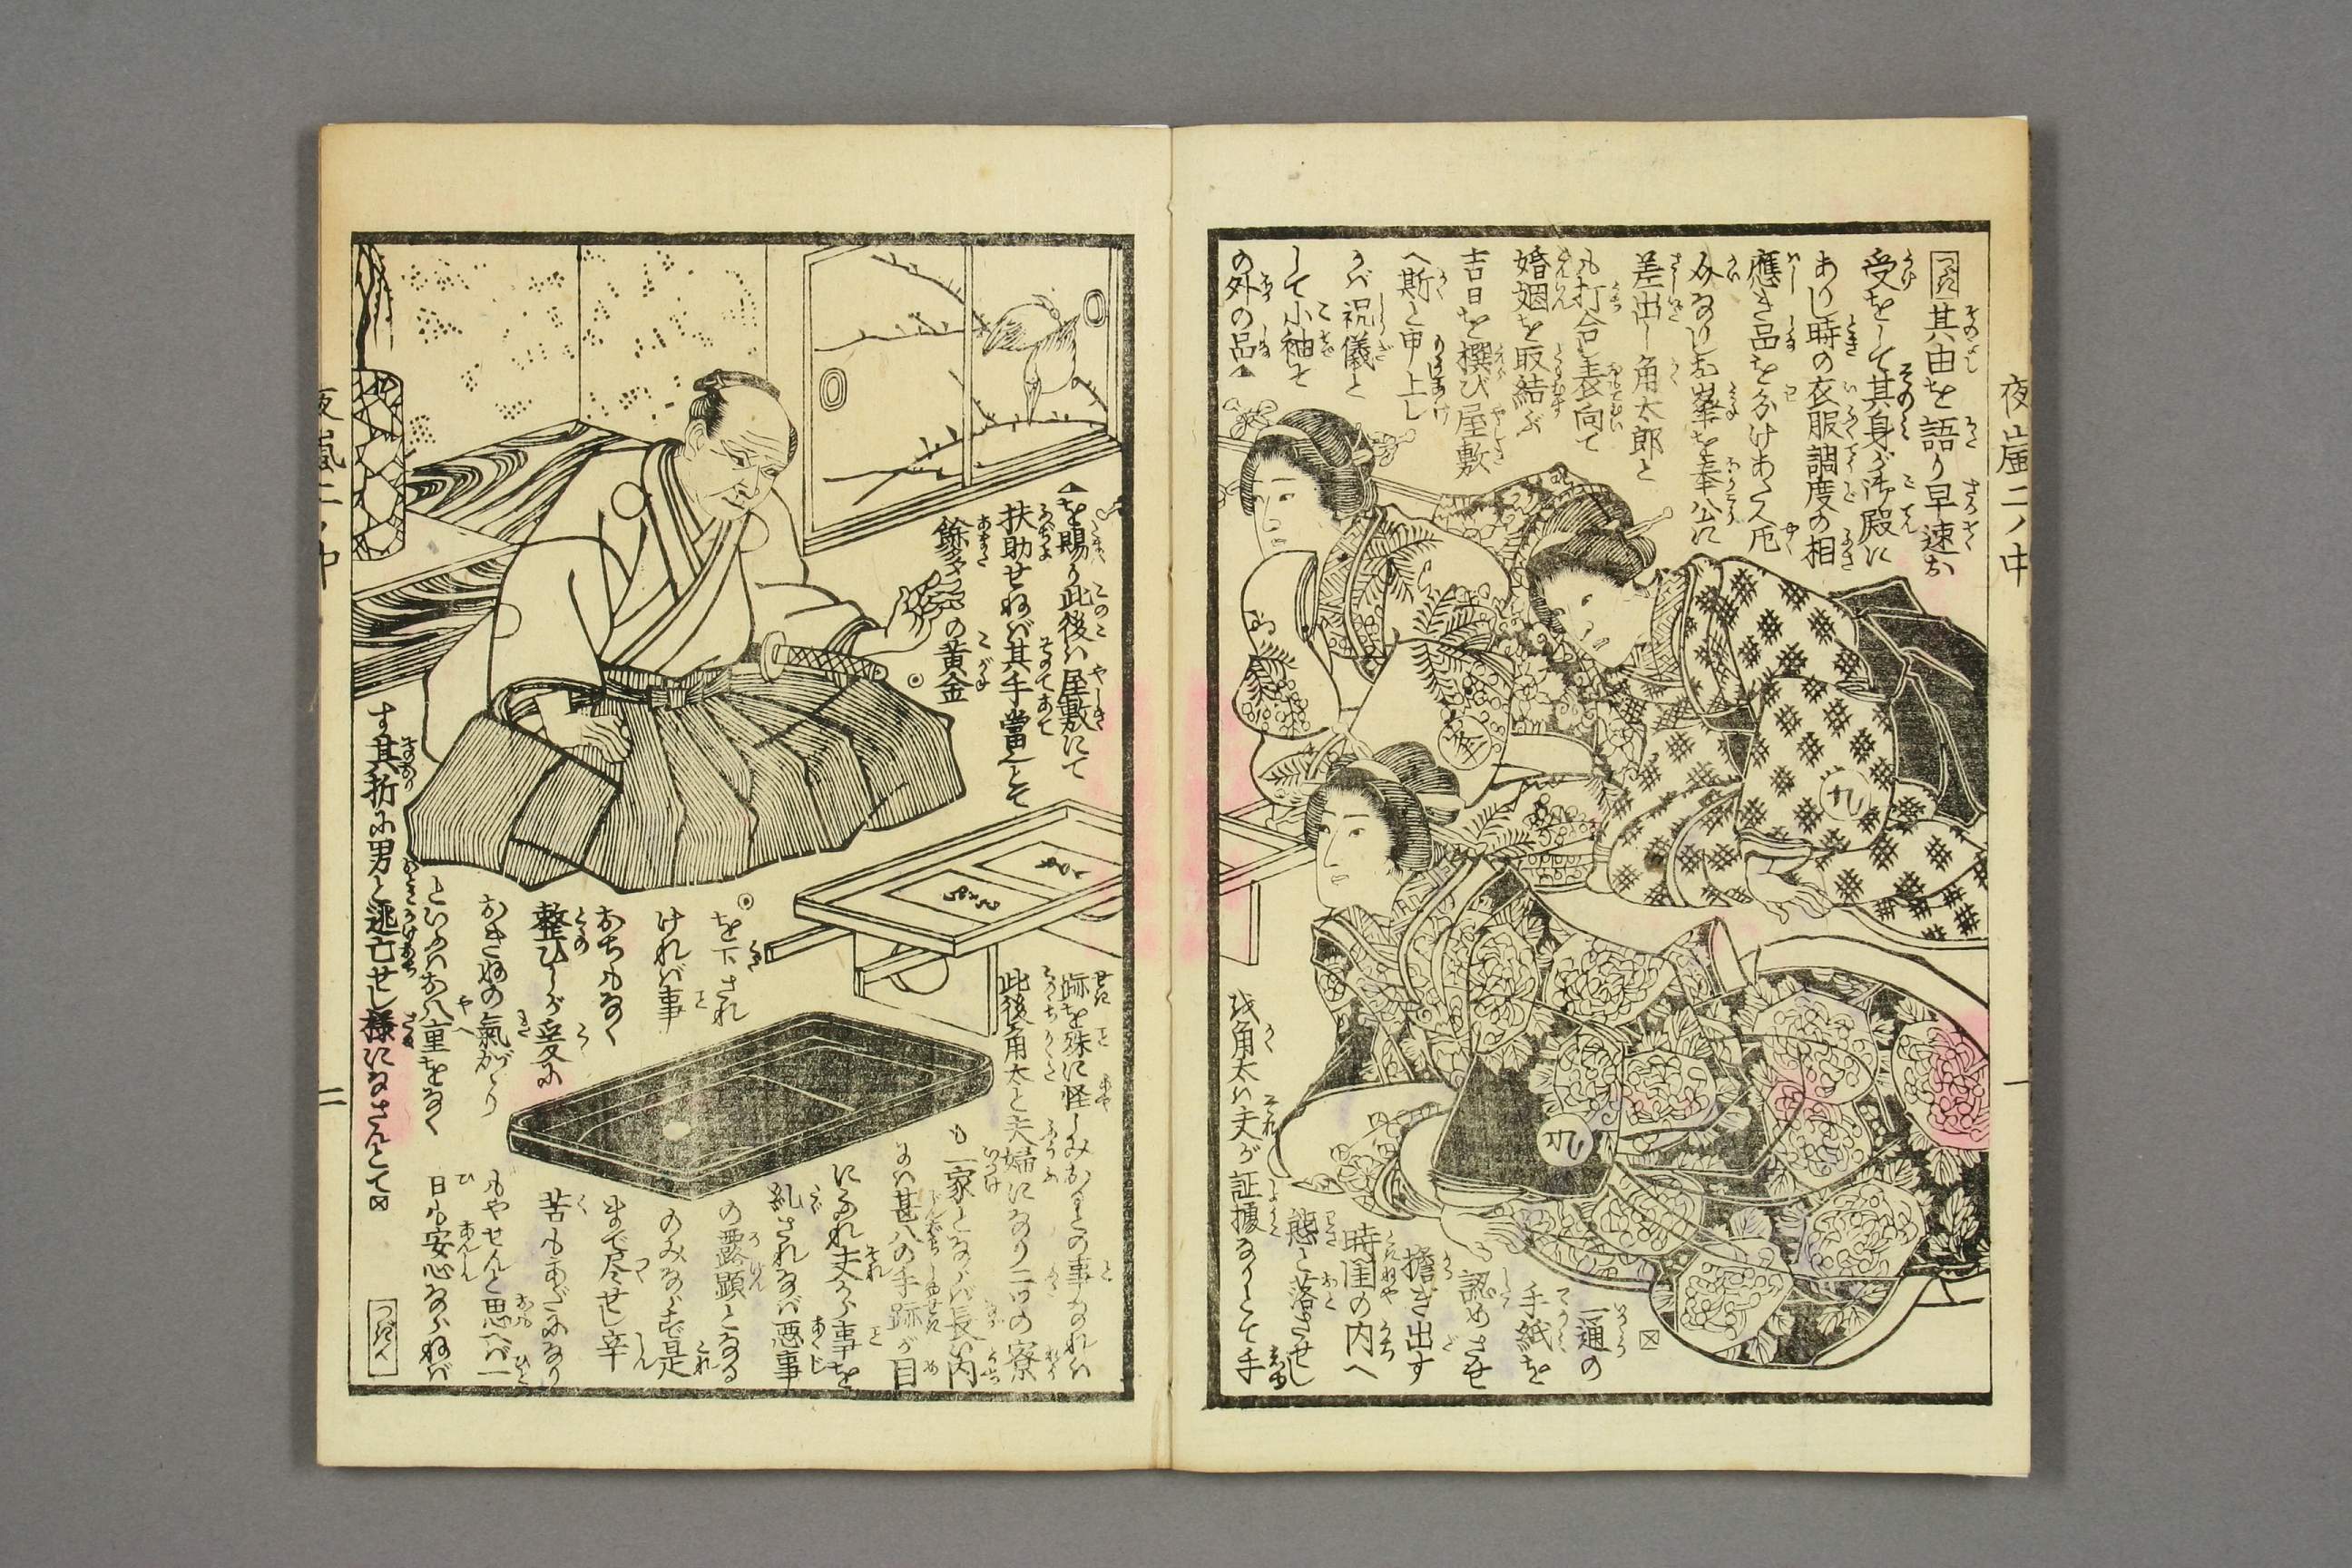 夜嵐二ノ中
一
つゞき其由を語り早速お
受をして其身が御殿に
ありし時の衣服調度の相
應き品を分けあたへ厄
介なりしお峯を奉公に
差出し角太郎と
も打合し表向て
婚姻を取結ぶ
吉日を撰び屋敷
へ斯と申上し
かバ祝儀と
して小袖そ
の外の品▲
▲を賜り此後ハ屋敷にて
扶助せねバ其手當とそ
餘多の黄金◉
◉を下され
けれバ事
おちもなく
整ひしが爰に
おきぬの氣がゝり
といふハお八重をなく
す其折に男と逃亡せし様になさんとて☒
☒一通の
手紙を
認めさせ
擔ぎ出す
時閨の内へ
態と落させし
を角太ハ夫が証據なりとて手
跡を殊に怪しみおりとの事なれハ
此後角太と夫婦になり二ツの寮
も一家とならバ長い内
にハ甚八の手跡が目
になれ夫から事を
糺されなバ悪事
の露顕となる
のみならず是
まで尽せし辛
苦もあだになり
もやせんと思へバ一
日も安心ならねバ
つゞく
夜嵐二ノ中
二